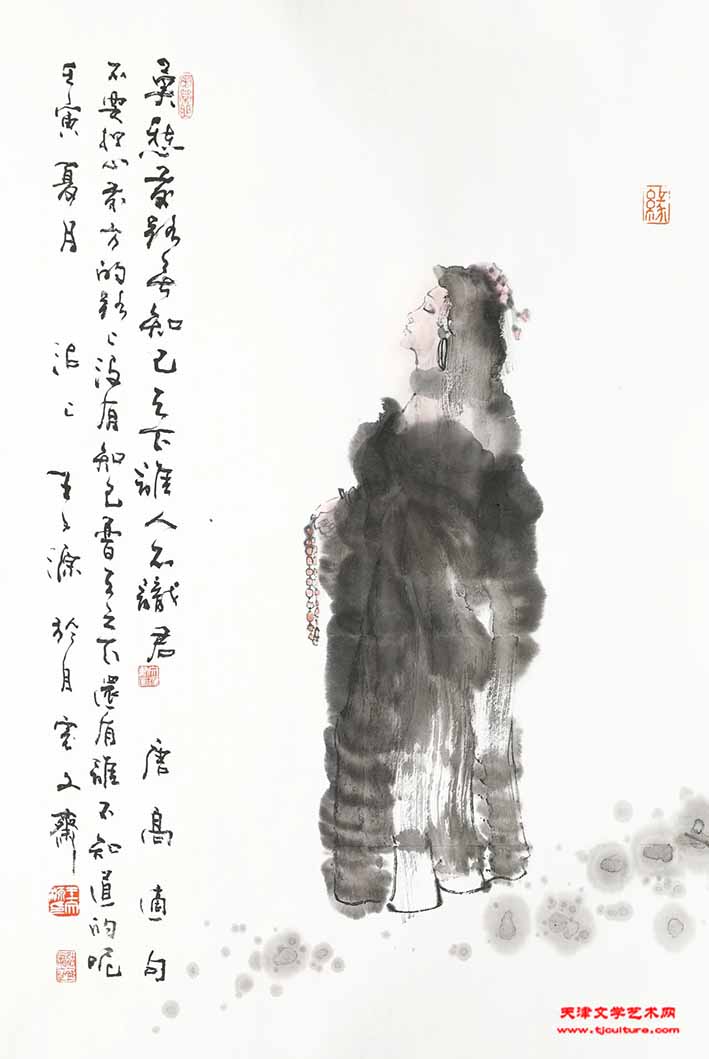 莫愁前路無知己天下誰人不識君 唐高適句
不要担心前方的路上沒有知己普天之下還有誰不知道的呢
壬寅夏月 沽上 王 於月 文齋
緣
天津文学艺术网
www.tjculture.com